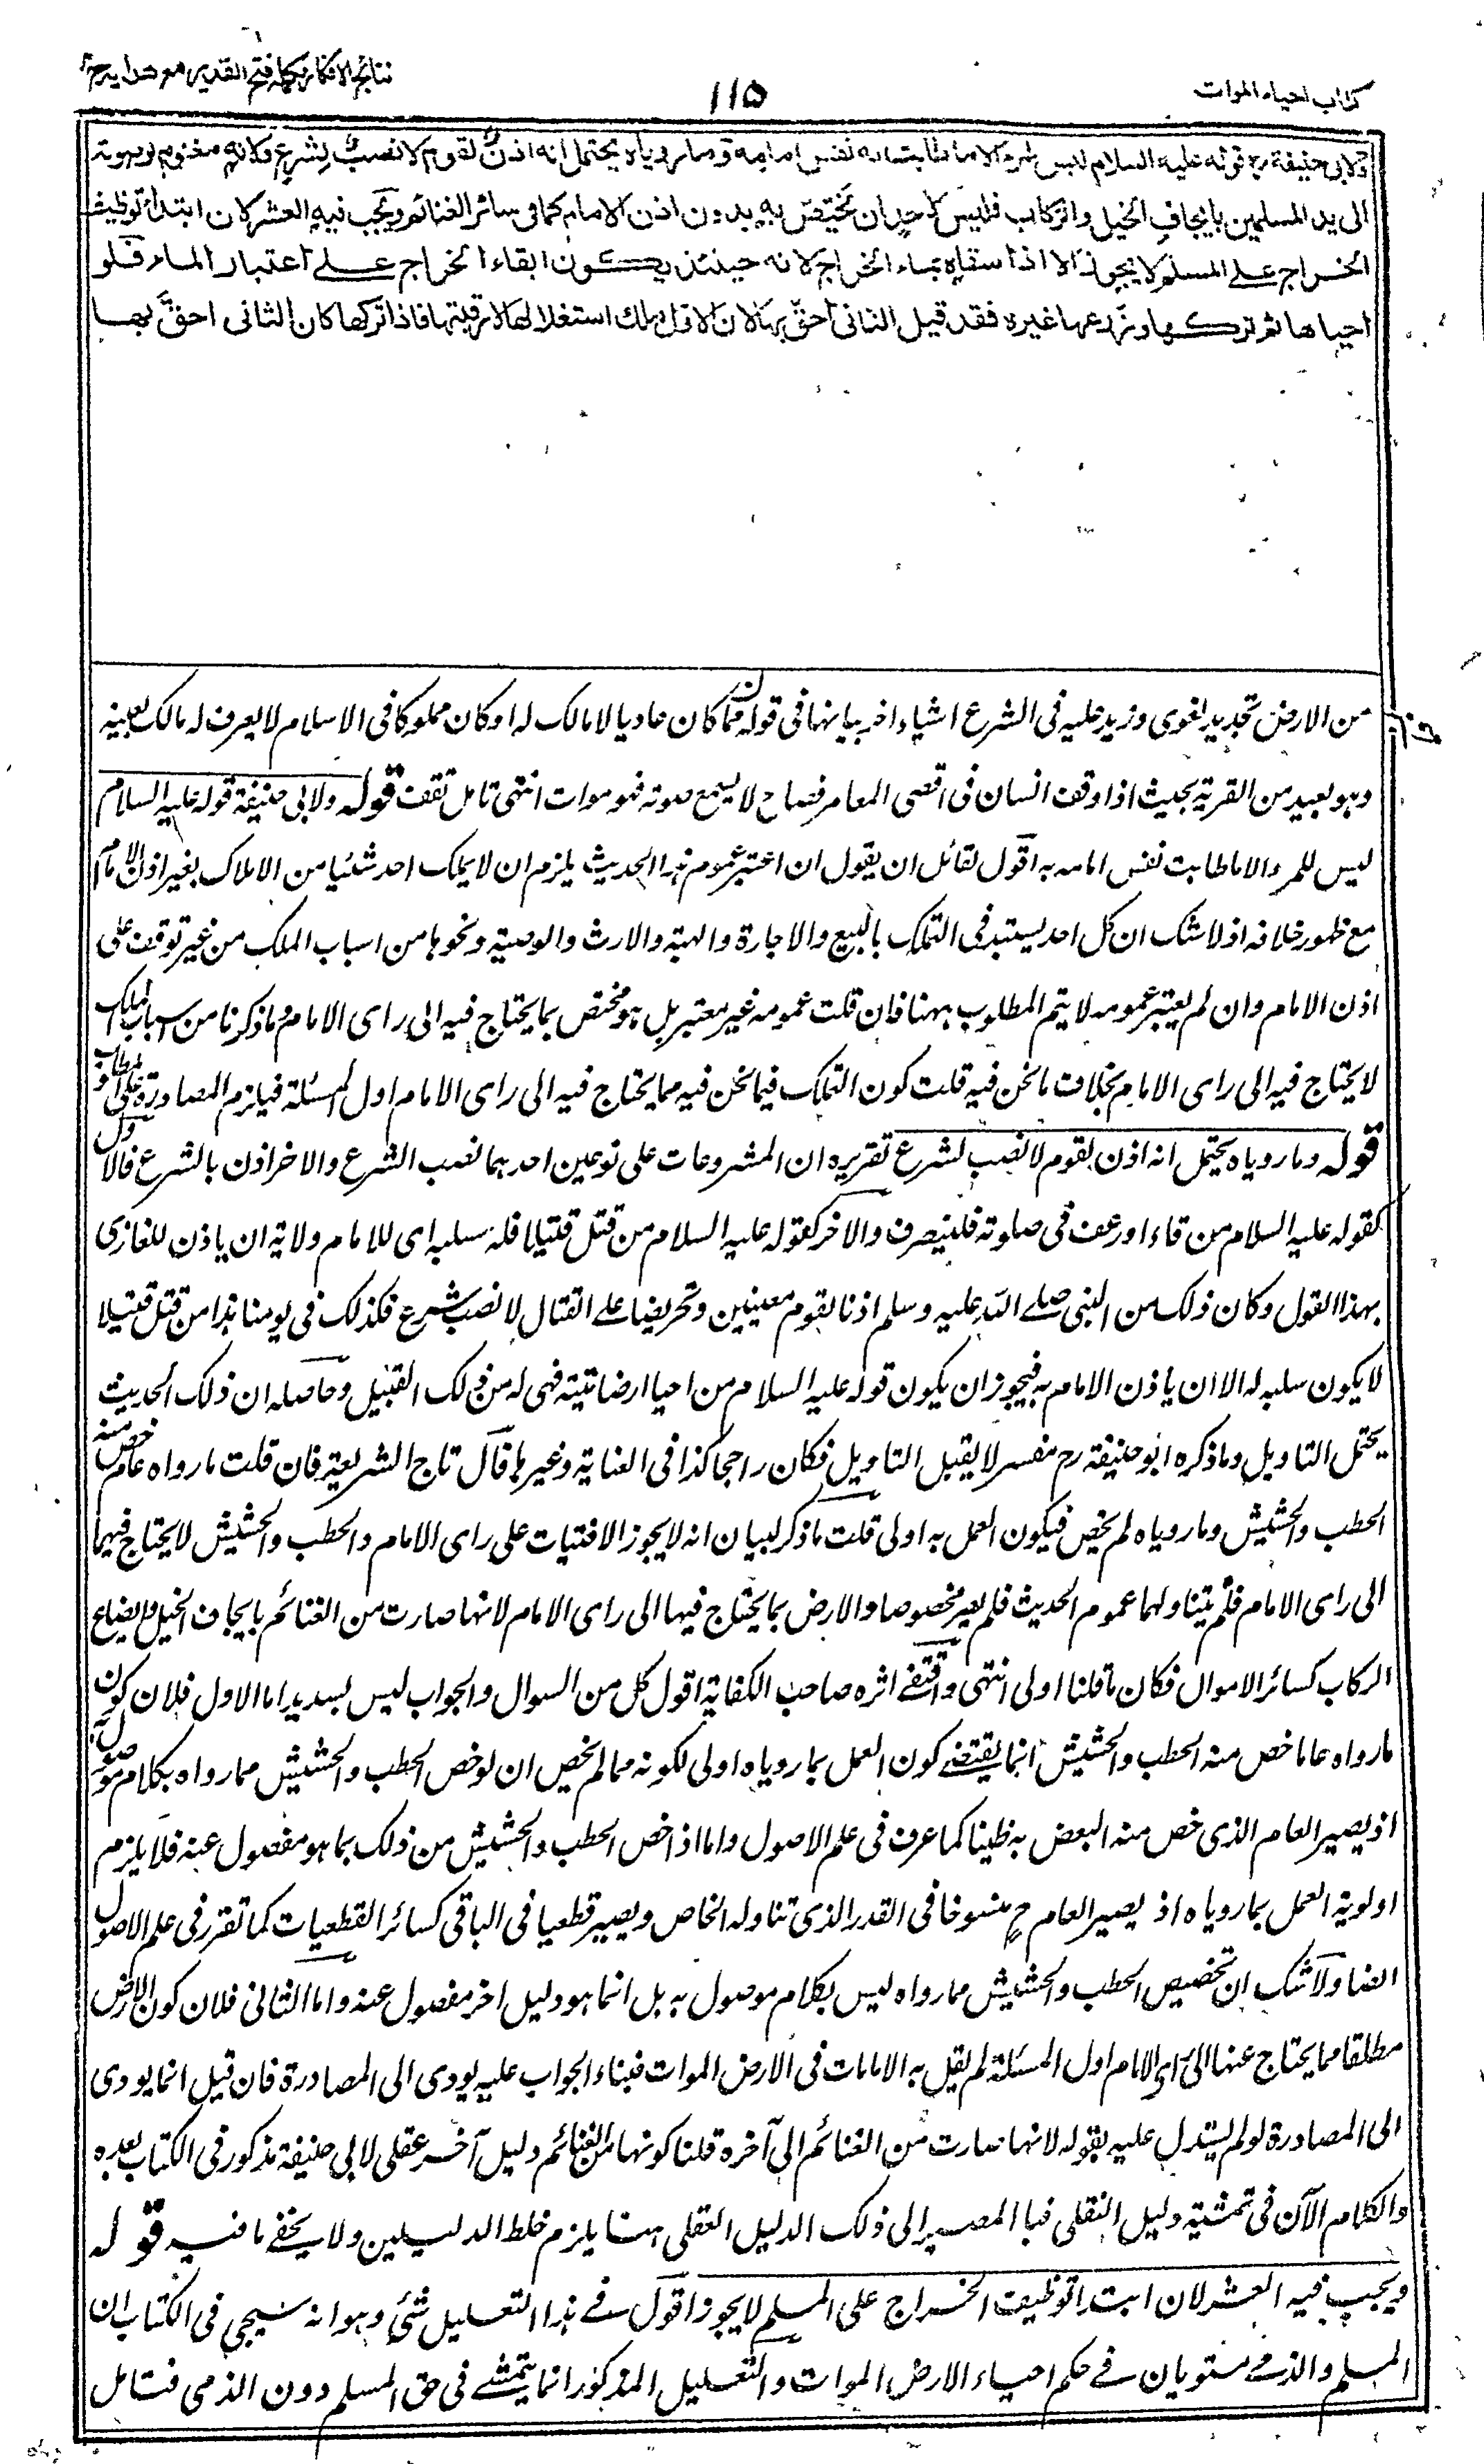 كتاب احياء الموات
١١٥
نتائج الافكار تكملة فتح القدير مع هدايه ج
ولابي حنيفة رح قوله عليه السلام ليس للمرء الا ما طابت به نفس امامه وما روياه يحتمل انه اذن لقوم لا نصب لشرع ولانه مغنوم لوصوله
الى يد المسلمين بايجاف الخيل والركاب فليس لاحد ان يختص به بدون اذن الامام كما في سائر الغنائم ويجب فيه العشر لان ابتداء توظيف
الخراج على المسلم لا يجوز الا اذا سقاه بماء الخراج لانه حينئذ يكون ابقاء الخراج على اعتبار الماء فلو
احياها ثم تركها وزرعها غيره فقد قيل الثاني احق بها لان الاول ملك استغلالها لا رقبتها فاذا تركها كان الثاني احق بها
من الارض تجديد لغوى وزيد عليه فى الشرع اشياء اخر بيانها فى قوله فما كان عاديا لا مالك له او كان مملوكا فى الاسلام لا يعرف له مالك بعينه
وهو بعيد من القرية بحيث اذا وقف انسان فى اقصى العامر فصاح لا يسمع صوته فهو موات انتهى تامل تقف قوله ولابى حنيفة قوله عليه السلام
ليس للمرء الا ما طابت نفس امامه به اقول لقائل ان يقول ان اعتبر عموم هذا الحديث يلزم ان لا يملك احد شئيا من الاملاك بغير اذن الامام
مع ظهور خلافه اذ لا شك ان كل احد يستبد فى التملك بالبيع والاجارة والهبة والارث والوصية ونحوها من اسباب الملك من غير توقف على
اذن الامام وان لم يعتبر عمومه لا يتم المطلوب ههنا فان قلت عمومه غير معتبر بل هو مختص بما يحتاج فيه الى راى الامام وما ذكرنا من اسباب الملك
لا يحتاج فيه الى راى الامام بخلاف ما نحن فيه قلت كون التملك فيما نحن فيه مما يحتاج فيه الى راى الامام اول المسئلة فيلزم المصادرة على المطلوب
قوله وما روياه يحتمل انه اذن لقوم لا نصب لشرع تقريره ان المشروعات على نوعين احدهما نصب الشرع والاخر اذن بالشرع فالاول
كقوله عليه السلام من قاء او رعف فى صلوته فلينصرف والاخر كقوله عليه السلام من قتل قتيلا فله سلبه اى للامام ولاية ان ياذن للغازى
بهذا القول وكان ذلك من النبى صلى الله عليه وسلم اذنا لقوم معينين وتحريضا على القتال لا نصب شرع فكذلك فى يومنا هذا من قتل قتيلا
لا يكون سلبه له الا ان ياذن الامام به فيجوز ان يكون قوله عليه السلام من احيا ارضا ميتة فهى له من ذلك القبيل وحاصله ان ذلك الحديث
يحتمل التاويل وما ذكره ابو حنيفة رح مفسر لا يقبل التاويل فكان راجحا كذا فى العناية وغيرها قال تاج الشريعة فان قلت ما رواه عام خص منه
الحطب والحشيش وما روياه لم يخص فيكون العمل به اولى قلت ما ذكر لبيان انه لا يجوز الافتيات على راى الامام والحطب والحشيش لا يحتاج فيهما
الى راى الامام فلم يتناولهما عموم الحديث فلم يصر مخصوصا والارض بما يحتاج فيها الى راى الامام لانها صارت من الغنائم بايجاف الخيل وايضاع
الركاب كسائر الاموال فكان ما قلنا اولى انتهى واقتفى اثره صاحب الكفاية اقول كل من السوال والجواب ليس بسديد اما الاول فلان كون
ما رواه عاما خص منه الحطب والحشيش انما يقتضى كون العمل بما روياه اولى لكونه مما لم يخص ان لو خص الحطب والحشيش مما رواه بكلام موصول به
اذ يصير العام الذى خص منه البعض به ظنيا كما عرف فى علم الاصول واما اذا خص الحطب والحشيش من ذلك بما هو مفصول عنه فلا يلزم
اولوية العمل بما روياه اذ يصير العام ح منسوخا فى القدر الذى تناوله الخاص ويصير قطعيا فى الباقى كسائر القطعيات كما تقرر فى علم الاصول
ايضا ولا شك ان تخصيص الحطب والحشيش مما رواه ليس بكلام موصول به بل انما هو دليل اخر مفصول عنه واما الثانى فلان كون الارض
مطلقا مما يحتاج عنها الى راى الامام اول المسئلة لم يقل به الامامان فى الارض الموات فبناء الجواب عليه يودى الى المصادرة فان قيل انما يودى
الى المصادرة لو لم يستدل عليه بقوله لانها صارت من الغنائم الى آخره قلنا كونها من الغنائم دليل آخر عقلى لابى حنيفة مذكور فى الكتاب بعده
والكلام الآن فى تمشية دليل النقلى فبا المصير الى ذلك الدليل العقلى هنا يلزم خلط الدليلين ولا يخفى ما فيه قوله
ويجب فيه العشر لان ابتداء توظيف الخراج على المسلم لا يجوز اقول فى هذا التعليل شئ وهو انه سيجى فى الكتاب ان
المسلم والذمى مستويان فى حكم احياء الارض الموات والتعليل المذكور انما يتمشى فى حق المسلم دون الذمى فتامل